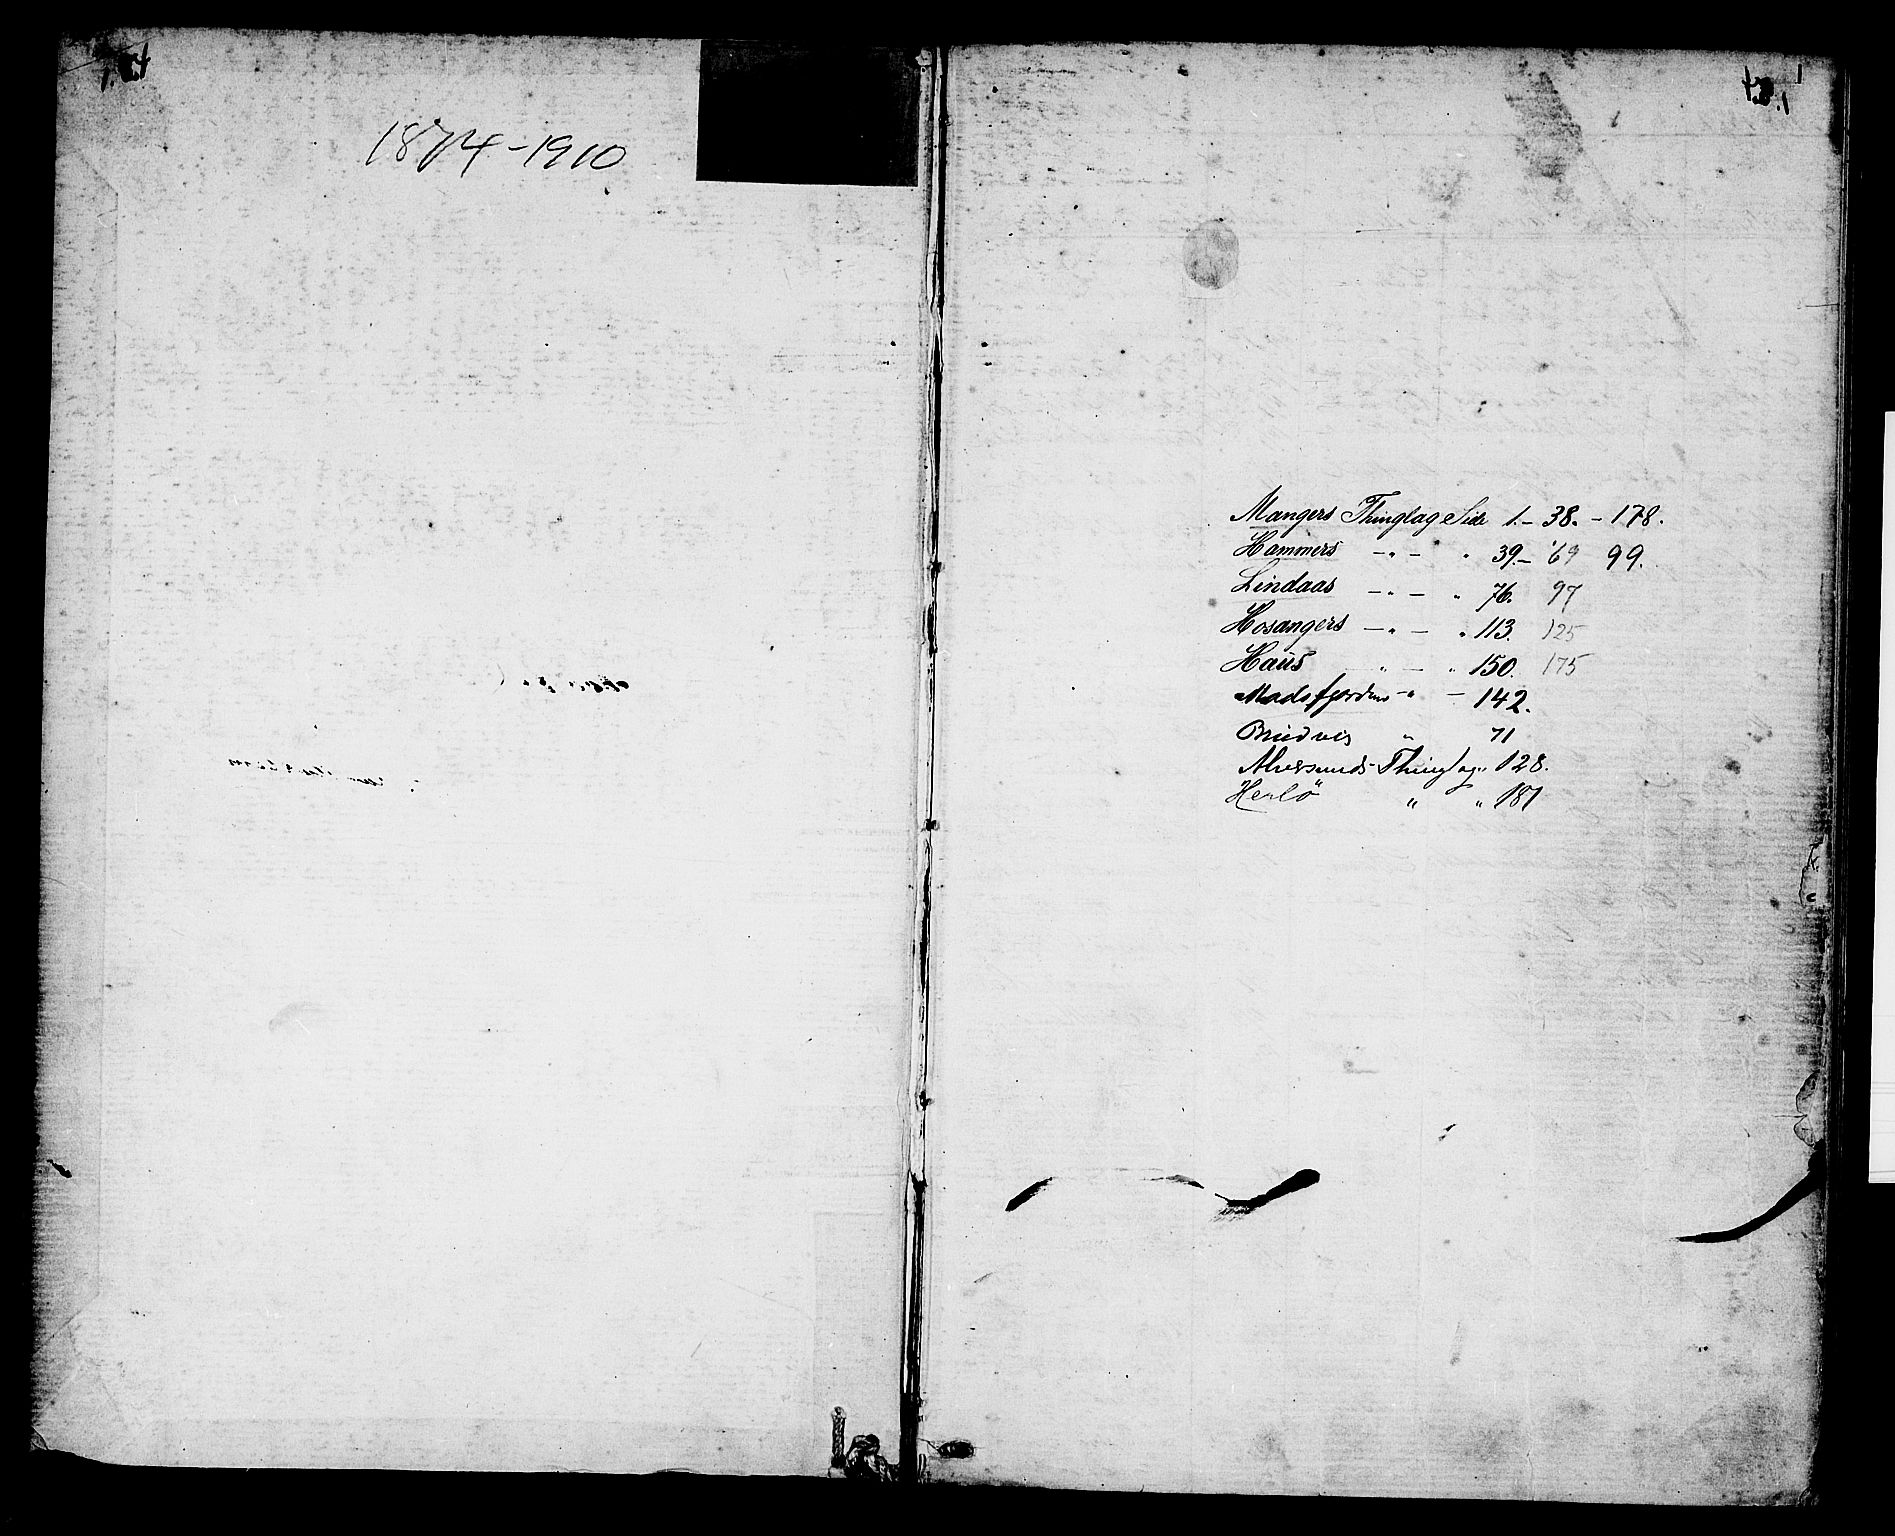 1874-1910
1
Mangers Thinglag Side 1.- 38. - 178.
Hammers -"- " 39.- 69 99.
Lindaas -"- " 76. 97
Hosangers -"- " 113. 125
Haus " - " 150. 175
Madsfjordens -"- 142.
Bruvig " 71
Alversunds-Thinglag " 128.
Herlö " " 181